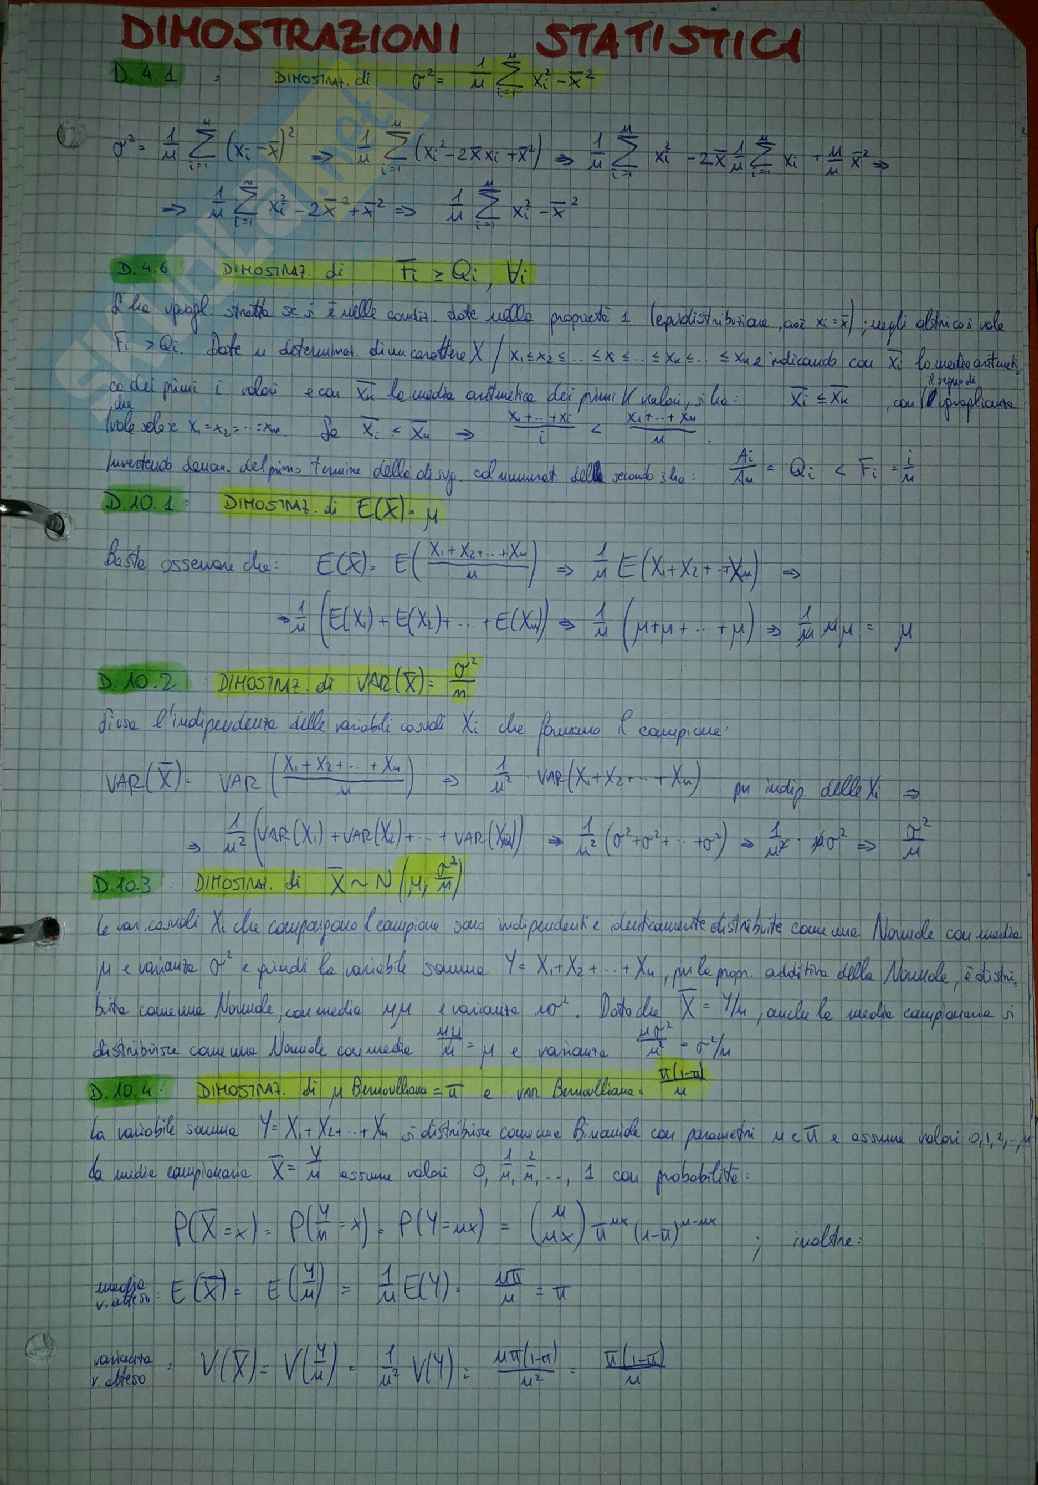 DIMOSTRAZIONI STATISTICA
D.4.1 : DIMOSTRAZ. di σ² = 1/n Σ_{i=1}^{n} xi² - x̄²
σ² = 1/n Σ_{i=1}^{n} (xi - x̄)² ⇒ 1/n Σ_{i=1}^{n} (xi² - 2x̄xi + x̄²) ⇒ 1/n Σ_{i=1}^{n} xi² - 2x̄ 1/n Σ_{i=1}^{n} xi + n/n x̄² ⇒
⇒ 1/n Σ_{i=1}^{n} xi² - 2x̄² + x̄² ⇒ 1/n Σ_{i=1}^{n} xi² - x̄²
D.4.6 DIMOSTRAZ di Fi ≥ Qi, ∀i
Si ha uguagl. stretta se si è nelle condiz. date nella proprietà 1 (equidistribuzione, cioè xi = x̄); negli altri casi vale
Fi > Qi. Date n determinaz. di un carattere X / x1 ≤ x2 ≤ ... ≤ xi ≤ ... ≤ xn e indicando con x̄i la media aritmeti
ca dei primi i valori e con x̄n la media aritmetica dei primi n valori, si ha: x̄i ≤ x̄n, con l'uguaglianza
che vale solo se x1 = x2 = ... = xn. Se x̄i < x̄n ⇒ x1+...+xi / i < x1+...+xn / n
Invertendo denom. del primo termine della disug. col numerat. della seconda si ha: Ai/An = Qi < Fi = i/n
D.10.1 : DIMOSTRAZ. di E(X̄) = μ
Basta osservare che: E(X̄) = E(X1+X2+...+Xn / n) ⇒ 1/n E(X1+X2+...+Xn) ⇒
⇒ 1/n (E(X1) + E(X2) + ... + E(Xn)) ⇒ 1/n (μ+μ+...+μ) ⇒ 1/n nμ = μ
D.10.2 DIMOSTRAZ. di VAR(X̄) = σ²/n
l'indipendenza delle variabili casuali Xi che formano il campione:
VAR(X̄) = VAR(X1+X2+...+Xn / n) ⇒ 1/n² · VAR(X1+X2+...+Xn) per indip. delle Xi ⇒
⇒ 1/n² (VAR(X1) + VAR(X2) + ... + VAR(Xn)) ⇒ 1/n² (σ²+σ²+...+σ²) ⇒ 1/n² · nσ² ⇒ σ²/n
D.10.3 : DIMOSTRAZ. di X̄ ~ N(μ, σ²/n)
Le var. casuali Xi che compongono il campione sono indipendenti e identicamente distribuite come una Normale con media
μ e varianza σ² e quindi la variabile somma Y = X1+X2+...+Xn, per la propr. additiva della Normale, è distri
buita come una Normale, con media nμ e varianza nσ². Dato che X̄ = Y/n, anche la media campionaria si
distribuisce come una Normale con media nμ/n = μ e varianza nσ²/n² = σ²/n
D.10.4 : DIMOSTRAZ. di μ Bernoulliana = π e var Bernoulliana = π(1-π)/n
La variabile somma Y = X1+X2+...+Xn si distribuisce come una Binomiale con parametri n e π e assume valori 0,1,2,..,n
La media campionaria X̄ = Y/n assume valori 0, 1/n, 2/n, ..., 1 con probabilità:
P(X̄=x) = P(Y/n = x) = P(Y=nx) = (n nx) π^nx (1-π)^n-nx ; inoltre:
media v. atteso : E(X̄) = E(Y/n) = 1/n E(Y) = nπ/n = π
varianza v. atteso : V(X̄) = V(Y/n) = 1/n² V(Y) = nπ(1-π)/n² = π(1-π)/n
SKUOLA.net